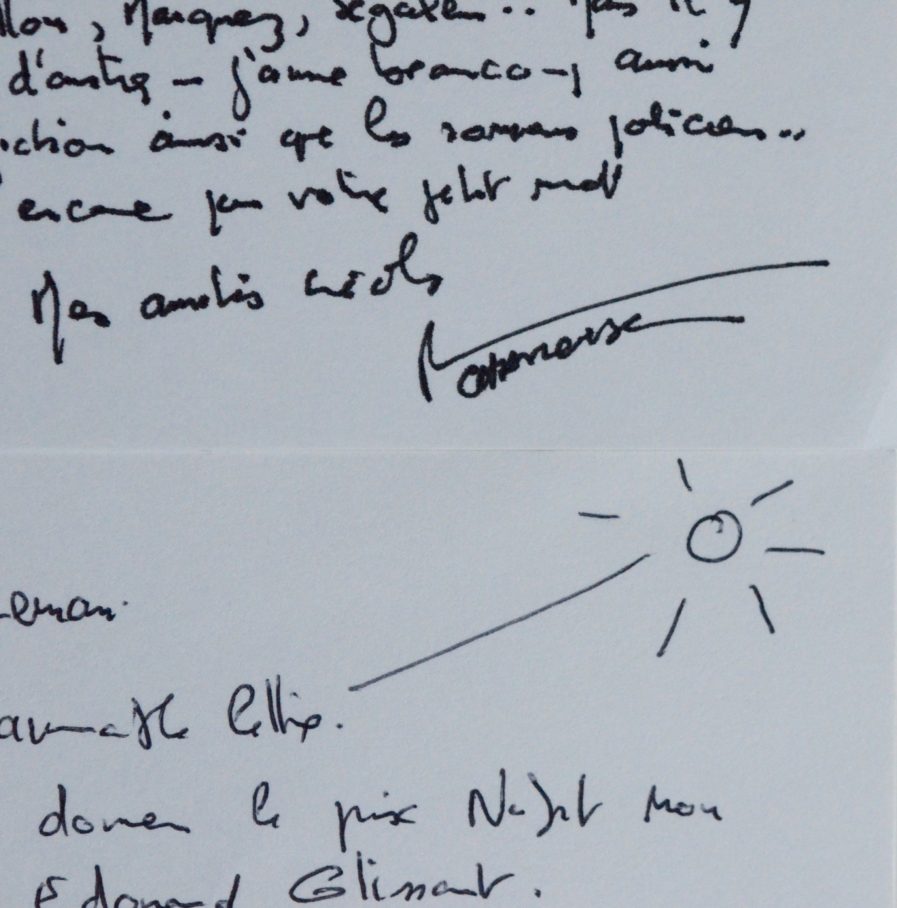 llon, Marquez, Segalen.. Mais il y
d'autres - j'aime beaucoup aussi
iction ainsi que les romans policiers..
encore pour votre petit mot
Mes amitiés créoles
Leman.
aimable lettre.
donner le prix Nobel mon
Edouard Glissant.